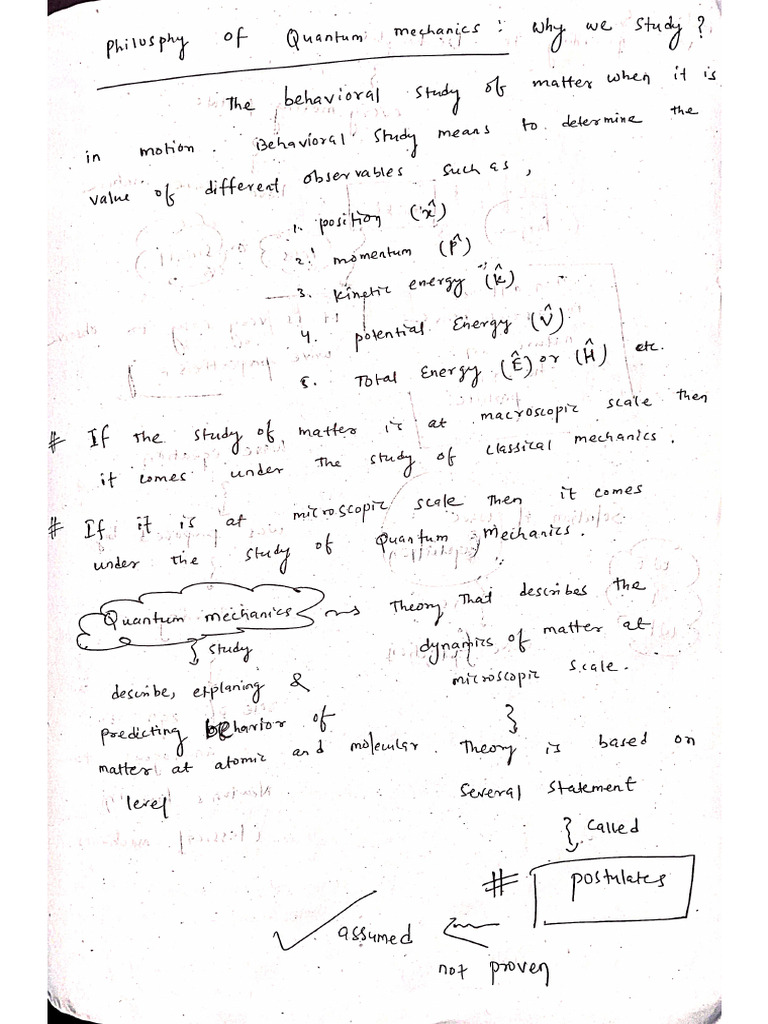 Philosphy of Quantum mechanics : Why we study ?
The behavioral study of matter when it is
in motion. Behavioral study means to determine the
value of different observables such as,
1. position (x̂)
2. momentum (p̂)
3. Kinetic energy (k̂)
4. potential Energy (V̂)
5. Total Energy (Ê) or (Ĥ) etc.
# If the study of matter is at macroscopic scale then
it comes under the study of classical mechanics.
# If it is at microscopic scale then it comes
under the study of Quantum Mechanics.
Quantum mechanics ⇝ Theory That describes the
dynamics of matter at
microscopic scale.
study
describe, explaning &
predicting behavior of
matter at atomic and molecular
level
Theory is based on
several statement
called
# postulates
✓ assumed ←
not proven